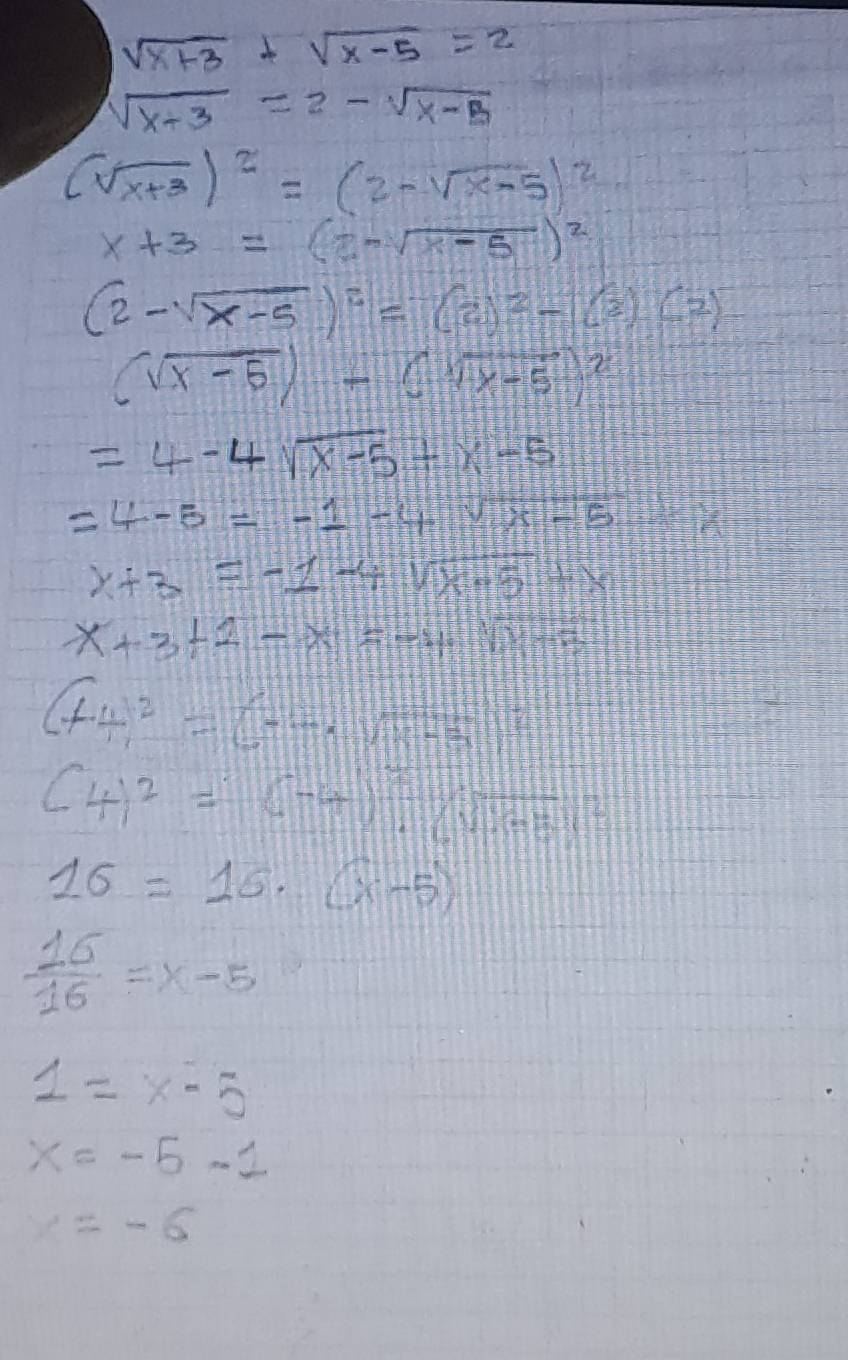 √x+3 + √x-5 = 2
√x+3 = 2 - √x-5
(√x+3)² = (2-√x-5)²
x+3 = (2-√x-5)²
(2-√x-5)² = (2)² - (2) (2)
(√x-5) + (√x-5)²
= 4-4√x-5 + x-5
= 4-5 = -1 -4 √x-5 + x
x+3 = -1-4 √x-5 + x
x+3+1-x = -4 √x-5
(+4)² = ( √x-5 ²
(4)² = (-4)² . (√x-5)²
16 = 16. (x-5)
16/16 = x-5
1 = x-5
x = -5 -1
x = -6